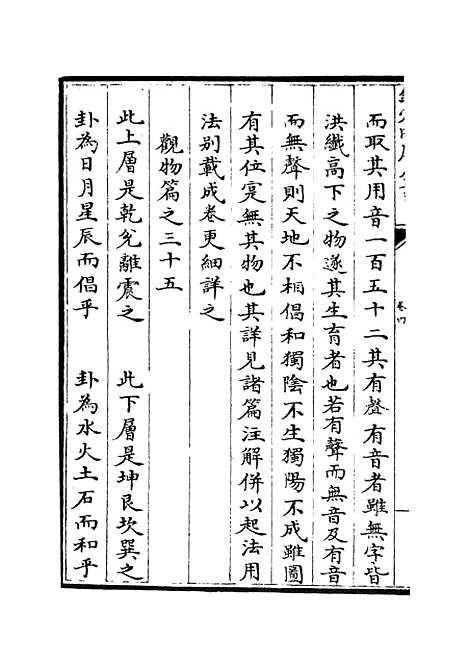 而取其用音一百五十二其有聲有音者雖無字皆
洪纖高下之物遂其生育者也若有聲而無音及有音
而無聲則天地不相倡和獨陰不生獨陽不成雖圖
有其位寔無其物也其詳見諸篇注解併以起法用
法别載成卷更細詳之
觀物篇之三十五
此上層是乾兊離震之 此下層是坤艮坎巽之
卦為日月星辰而倡乎 卦為水火土石而和乎
卷四